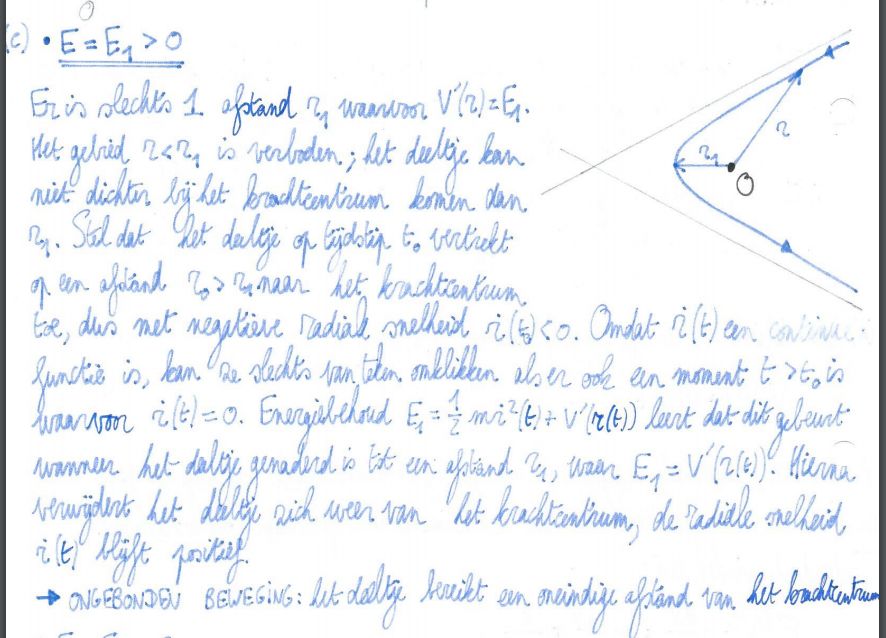 (c) • E = E₁ > 0
Er is slechts 1 afstand r₁ waarvoor V'(r) = E₁.
Het gebied r < r₁ is verboden; het deeltje kan
niet dichter bij het krachtcentrum komen dan
r₁. Stel dat het deeltje op tijdstip t₀ vertrekt
op een afstand r₀ > r₁ naar het krachtcentrum
toe, dus met negatieve radiale snelheid ṙ(t₀) < 0. Omdat ṙ(t) een continue
functie is, kan ze slechts van teken omklikken als er ook een moment t > t₀ is
waarvoor ṙ(t) = 0. Energiebehoud E₁ = 1/2 mṙ²(t) + V'(r(t)) leert dat dit gebeurt
wanneer het deeltje genaderd is tot een afstand r₁, waar E₁ = V'(r(t)). Hierna
verwijdert het deeltje zich weer van het krachtcentrum, de radiële snelheid
ṙ(t) blijft positief.
→ ONGEBONDEN BEWEGING: het deeltje bereikt een oneindige afstand van het krachtcentrum
r
r₁
O